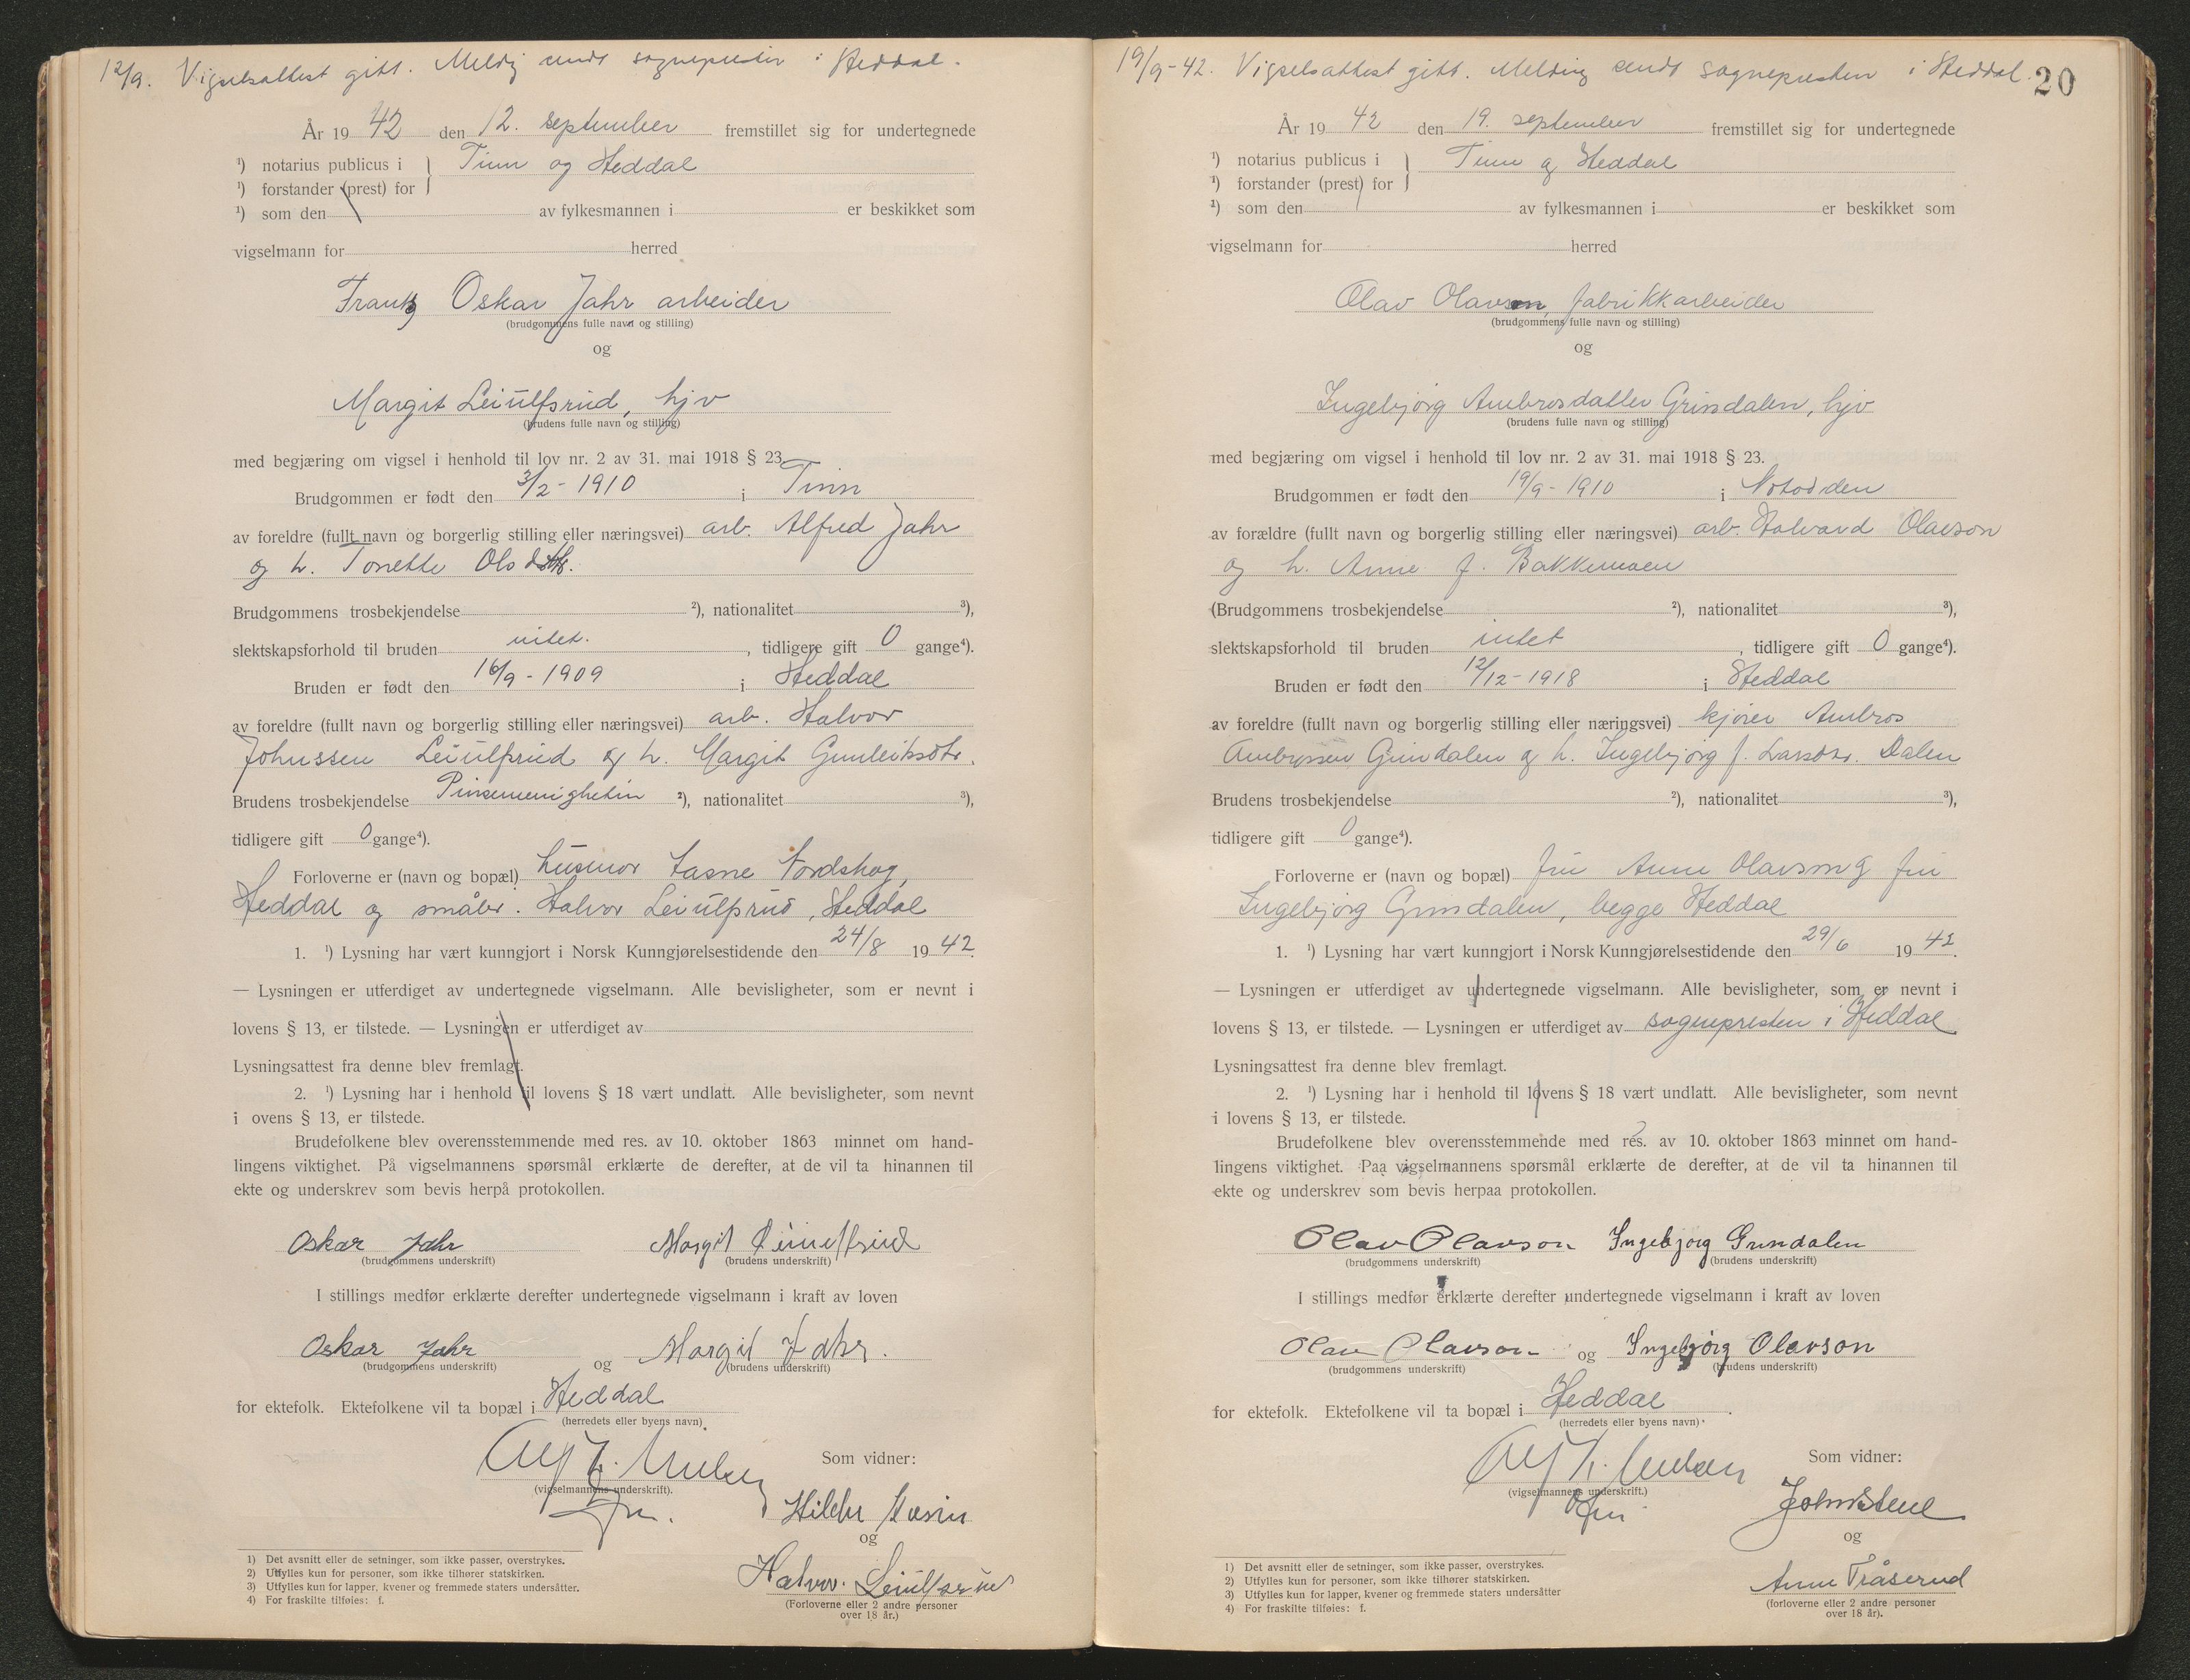 12/9. Vigselsattest gitt. Meldg sendt sognepresten i Heddal.
År 19 42 den 12. september fremstillet sig for undertegnede
¹) notarius publicus i } Tinn og Heddal
¹) forstander (prest) for
¹) som den av fylkesmannen i er beskikket som
vigselmann for herred
Frantz Oskar Jahr arbeider
(brudgommens fulle navn og stilling)
og
Margit Leiulfsrud, hjv
(brudens fulle navn og stilling)
med begjæring om vigsel i henhold til lov nr. 2 av 31. mai 1918 § 23.
Brudgommen er født den 3/2 - 1910 i Tinn
av foreldre (fullt navn og borgerlig stilling eller næringsvei) arb. Alfred Jahr
og h. Tonette Olsdtr.
Brudgommens trosbekjendelse ²), nationalitet ³),
slektskapsforhold til bruden intet. , tidligere gift 0 gange⁴).
Bruden er født den 16/9 - 1909 i Heddal
av foreldre (fullt navn og borgerlig stilling eller næringsvei) arb. Halvor
Johnssen Leiulfsrud og h. Margit Gunleiksdtr.
Brudens trosbekjendelse Pinsemenigheten ²), nationalitet ³),
tidligere gift 0 gange⁴).
Forloverne er (navn og bopæl) husmor Nordskog,
Heddal og småbr. Halvor Leiulfsrud, Heddal
1. ¹) Lysning har vært kunngjort i Norsk Kunngjørelsestidende den 24/8 19 42.
— Lysningen er utferdiget av undertegnede vigselmann. Alle bevisligheter, som er nevnt i
lovens § 13, er tilstede. — Lysningen er utferdiget av
Lysningsattest fra denne blev fremlagt.
2. ¹) Lysning har i henhold til lovens § 18 vært undlatt. Alle bevisligheter, som nevnt
i ovens § 13, er tilstede.
Brudefolkene blev overensstemmende med res. av 10. oktober 1863 minnet om hand-
lingens viktighet. På vigselmannens spørsmål erklærte de derefter, at de vil ta hinannen til
ekte og underskrev som bevis herpå protokollen.
Oskar Jahr Margit Leiulfsrud
(brudgommens underskrift) (brudens underskrift)
I stillings medfør erklærte derefter undertegnede vigselmann i kraft av loven
Oskar Jahr og Margit Jahr.
(brudgommens underskrift) (brudens underskrift)
for ektefolk. Ektefolkene vil ta bopæl i Heddal
(herredets eller byens navn).
Som vidner:
(vigselmannens underskrift).
og
Halvor Leiulfsrud
(Forloverne eller 2 andre personer
over 18 år.)
1) Det avsnitt eller de setninger, som ikke passer, overstrykes.
2) Utfylles kun for personer, som ikke tilhører statskirken.
3) Utfylles kun for lapper, kvener og fremmede staters undersåtter.
4) For fraskilte tilføies: f.
19/9-42. Vigselsattest gitt. Melding sendt sognepresten i Heddal.
20
År 19 42 den 19. september fremstillet sig for undertegnede
¹) notarius publicus i } Tinn og Heddal
¹) forstander (prest) for
¹) som den av fylkesmannen i er beskikket som
vigselmann for herred
Olav Olavson, fabrikkarbeider
(brudgommens fulle navn og stilling)
og
Ingebjørg Ambrosdatter Grindalen, hjv
(brudens fulle navn og stilling)
med begjæring om vigsel i henhold til lov nr. 2 av 31. mai 1918 § 23.
Brudgommen er født den 19/9 - 1910 i Notodden
av forældre (fullt navn og borgerlig stilling eller næringsvei) arb. Halvard Olavson
og h. Anne f. Bakkemoen
(Brudgommens trosbekjendelse ²), nationalitet ³),
slektskapsforhold til bruden intet , tidligere gift 0 gange⁴).
Bruden er født den 12/12 - 1918 i Heddal
av foreldre (fullt navn og borgerlig stilling eller næringsvei) kjører Ambros
Ambrossen Grindalen og h. Ingebjørg f. Larsdtr. Dalen
Brudens trosbekjendelse ²), nationalitet ³),
tidligere gift 0 gange⁴).
Forloverne er (navn og bopæl) fru Anne Olavson og fru
Ingebjørg Grindalen, begge Heddal
1. ¹) Lysning har vært kunngjort i Norsk Kunngjørelsestidende den 29/6 19 42.
— Lysningen er utferdiget av undertegnede vigselmann. Alle bevisligheter, som er nevnt i
lovens § 13, er tilstede. — Lysningen er utferdiget av sognepresten i Heddal
Lysningsattest fra denne blev fremlagt.
2. ¹) Lysning har i henhold til lovens § 18 vært undlatt. Alle bevisligheter, som nevnt
i lovens § 13, er tilstede.
Brudefolkene blev overensstemmende med res. av 10. oktober 1863 minnet om hand-
lingens viktighet. Paa vigselmannens spørsmål erklærte de derefter, at de vil ta hinannen til
ekte og underskrev som bevis herpaa protokollen.
Olav Olavson Ingebjørg Grindalen
(brudgommens underskrift) (brudens underskrift)
I stillings medfør erklærte derefter undertegnede vigselmann i kraft av loven
Olav Olavson og Ingebjørg Olavson
(brudgommens underskrift) (brudens underskrift)
for ektefolk. Ektefolkene vil ta bopæl i Heddal
(herredets eller byens navn).
Som vidner:
(vigselmannens underskrift.)
og
Anne Tråserud
(forloverne eller 2 andre personer
over 18 år).
1) Det avsnitt eller de setninger, som ikke passer, overstrykes.
2) Utfylles kun for personer, som ikke tilhører statskirken.
3) Utfylles kun for lapper, kvener og fremmede staters undersåtter
4) For fraskilte tilføies: f.